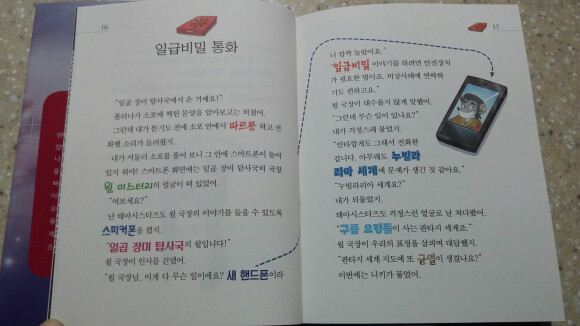 16
일급비밀 통화
"일곱 장미 탐사국에서 온 거예요!"
폴리나가 소포에 찍힌 문양을 알아보고는 외쳤어.
그런데 내가 뜯기도 전에 소포 안에서 따르릉 하고 전
화벨 소리가 들려왔지.
내가 서둘러 소포를 풀어 보니 그 안에 스마트폰이 들어
있지 뭐야! 스마트폰 화면에는 일곱 장미 탐사국의 국장
윌 미스터리의 얼굴이 떠 있었어.
"여보세요?"
난 테아시스터즈도 윌 국장의 이야기를 들을 수 있도록
스피커폰을 켰지.
"일곱 장미 탐사국의 윌입니다!"
윌 국장이 인사를 건넸어.
"윌 국장님, 이게 다 무슨 일이에요? 새 핸드폰이라
17
니 깜짝 놀랐어요."
"일급비밀 이야기를 하려면 안전장치
가 필요한 법이죠. 비상사태에 연락하
기도 편하고요."
윌 국장이 대수롭지 않게 말했어.
"그런데 무슨 일이 있나요?"
내가 걱정스레 물었지.
"안타깝게도 그래서 전화한
겁니다. 아무래도 누빌라
리아 세계에 문제가 생긴 것 같아요."
"누빌라리아 세계요?"
내가 되물었지.
테아시스터즈도 걱정스런 얼굴로 날 쳐다봤어.
"구름 요정들이 사는 판타지 세계죠."
윌 국장이 우리의 표정을 살피며 대답했지.
"판타지 세계 지도에 또 균열이 생겼나요?"
이번에는 니키가 물었어.